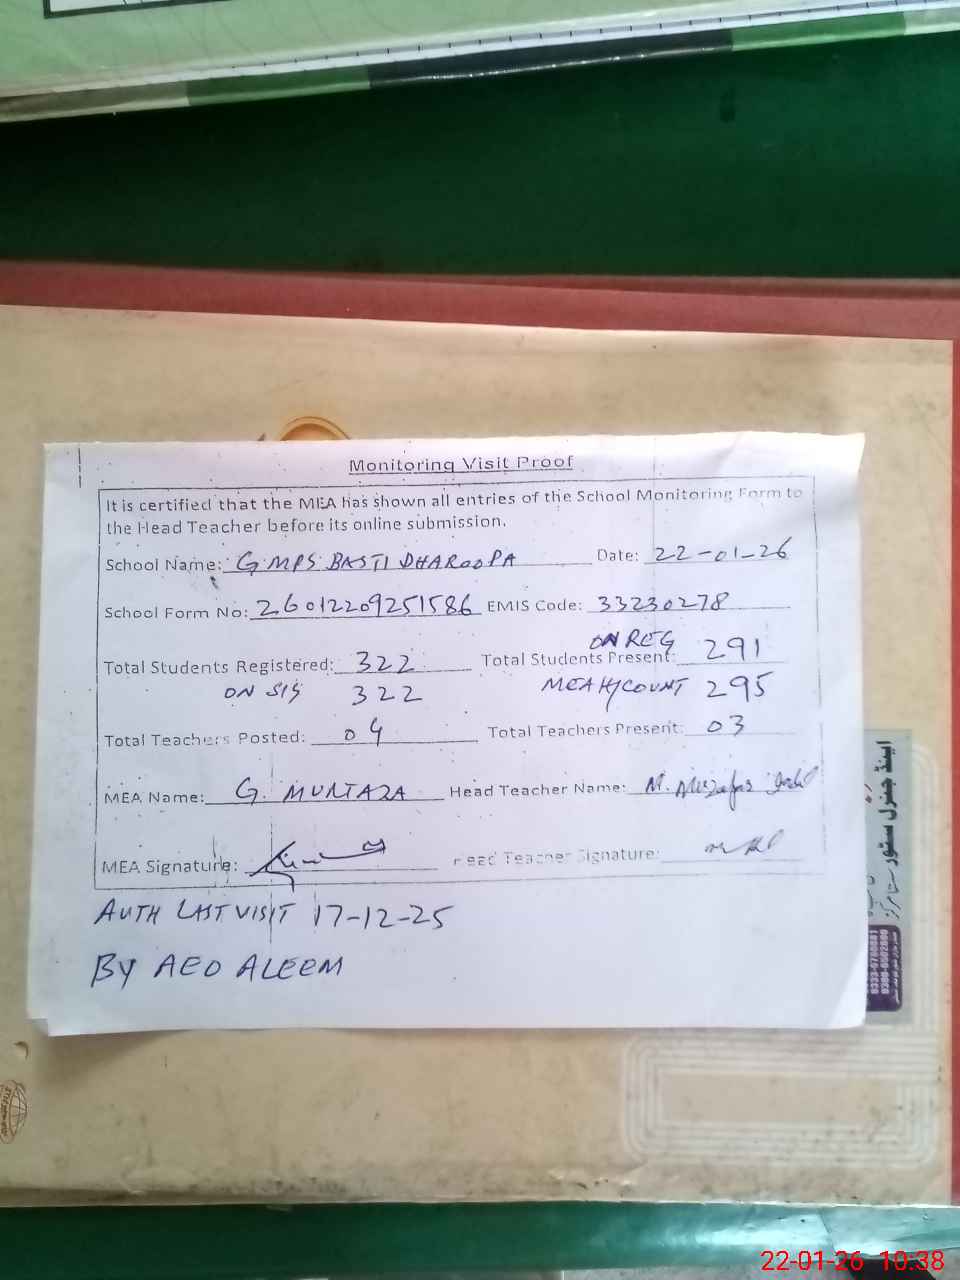 Monitoring Visit Proof
It is certified that the MEA has shown all entries of the School Monitoring Form to
the Head Teacher before its online submission.
School Name: G.MPS BASTI DHAROOPA Date: 22-01-26
School Form No: 26012209251586 EMIS Code: 33230278
ON REG
Total Students Registered: 322 Total Students Present: 291
ON SIS 322 MEA H/COUNT 295
Total Teachers Posted: 04 Total Teachers Present: 03
MEA Name: G. MURTAZA Head Teacher Name: M. Muzafar
MEA Signature: Head Teacher Signature:
AUTH LAST VISIT 17-12-25
BY AEO ALEEM
اینڈ جنرل سٹور
0333-6780881
22-01-26 10:38